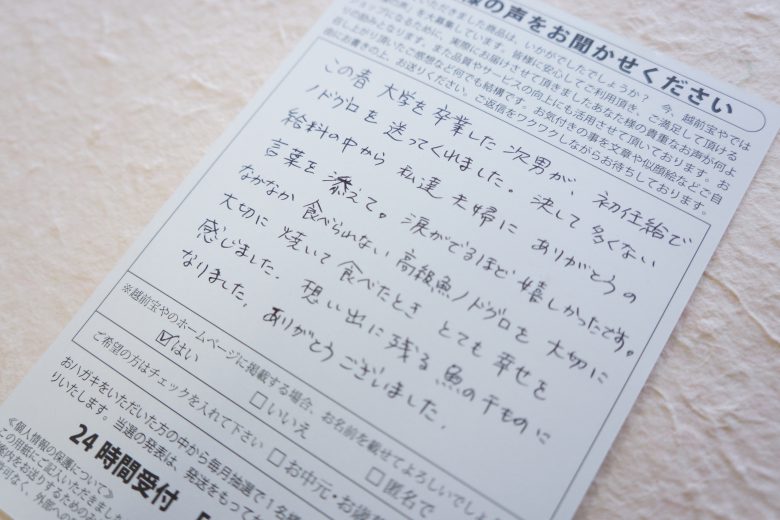 様の声をお聞かせください
いただきました商品は、いかがでしたでしょうか？ 今、越前宝やでは
」を大募集しています。皆様に安心してご利用頂き、ご満足して頂ける
ショップになるために、実際にお届けさせて頂きましたあなた様の貴重なお声が何よ
の励みになります。また品質やサービスの向上にも活用させて頂いております。お
召し上がり頂いたご感想など何でも結構です。お気付きの事を文章や似顔絵などご自
由にお書きの上、お送りください。ご返信をワクワクしながらお待ちしております。
この春 大学を卒業した次男が、初任給で
ノドグロを 送ってくれました。決して多くない
給料の中から 私達夫婦に ありがとうの
言葉を 添えて。涙がでるほど嬉しかったです。
なかなか 食べられない 高級魚ノドグロを 大切に
大切に 焼いて 食べたとき とても 幸せを
感じました。 想い出に残る 魚の干ものに
なりました。ありがとうございました。
※越前宝やのホームページに掲載する場合、お名前を載せてよろしいでしょ
☑はい □いいえ □匿名で
ご希望の方はチェックを入れて下さい □お中元・お歳
おハガキをいただいた方の中から毎月抽選で1名様
りいたします。当選の発表は、発送をもって
24時間受付
≪個人情報の保護について≫
この用紙にご記入いただきました
案内をお送りするためのみ
許可なく、外部への